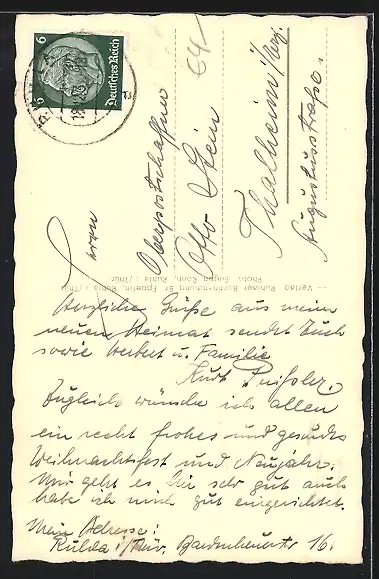 6 6
Deutsches Reich
Herrn
Oberpostschaffner
Otto Stein
Thalheim / Erzg.
Augustusstraße.
64
Verlag Ruhlaer Buchhandlung Br. Eppelin, Ruhla i./Thür.
Phot. Eugen Sonn, Ruhla i./Thür.
Herzliche Grüße aus meiner
neuen Heimat sendet Euch
sowie Herbert u. Familie
Kurt
Zugleich wünsche ich allen
ein recht frohes und gesundes
Weihnachtsfest und Neujahr.
Mir geht es hier sehr gut auch
habe ich mich gut eingerichtet.
Meine Adresse:
Ruhla i/Thür, 16.